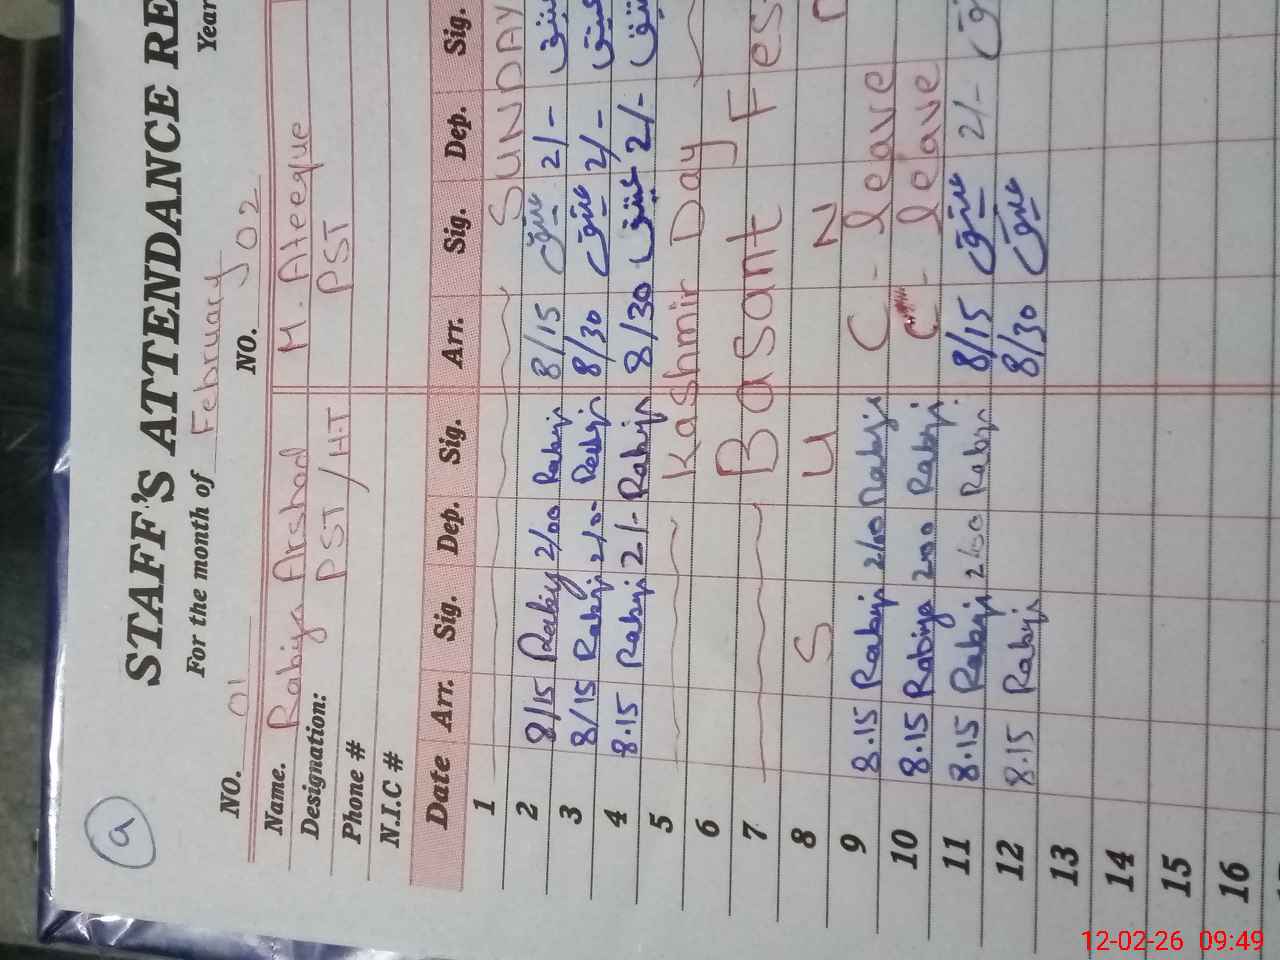 a
STAFF'S ATTENDANCE RE
For the month of February Year
NO. 01 NO. 02
Name. Rabiya Arshad M. Ateeque
Designation: PST / H.T PST
Phone #
N.I.C #
Date Arr. Sig. Dep. Sig. Arr. Sig. Dep. Sig.
1 SUNDAY
2 8/15 Rabiy 2/00 Rabiy 8/15 عتیق 2/- عتیق
3 8/15 Rabiy 2/0- Rabiy 8/30 عتیق 2/- عتیق
4 8.15 Rabiy 2/- Rabiy 8/30 عتیق 2/- عتیق
5 Kashmir Day
6 Basant Fes
7
8 S U N
9 8.15 Rabiy 2/00 Rabiy C - leave
10 8.15 Rabiya 200 Rabiy C - leave
11 8.15 Rabiy 2/00 Rabiy 8/15 عتیق 2/-
12 8.15 Rabiy 8/30 عتیق
13
14
15
16
12-02-26 09:49